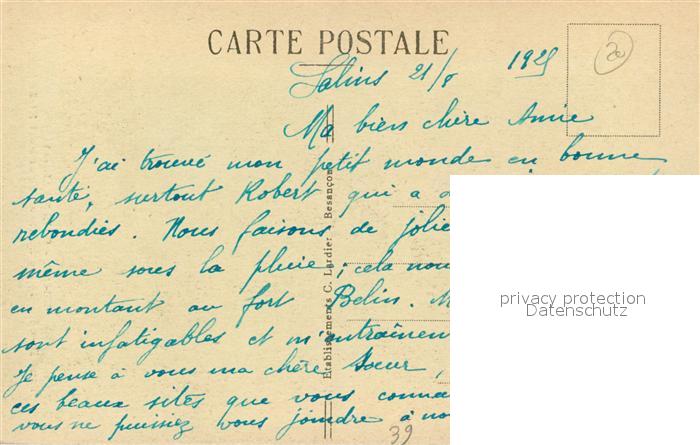 CARTE POSTALE
Salins 21/8 1925
20
Ma bien chère Amie
J'ai trouvé mon petit monde en bonne
santé, surtout Robert qui a
rebondies. Nous faisons de
même sous la pluie; cela
en montant au fort Belin.
sont infatigables et m'entraînent
Je pense à vous ma chère Soeur,
ces beaux sites que vous
vous ne puissiez vous joindre à
Etablissements C. Lardier, Besançon
privacy protection
Datenschutz
39